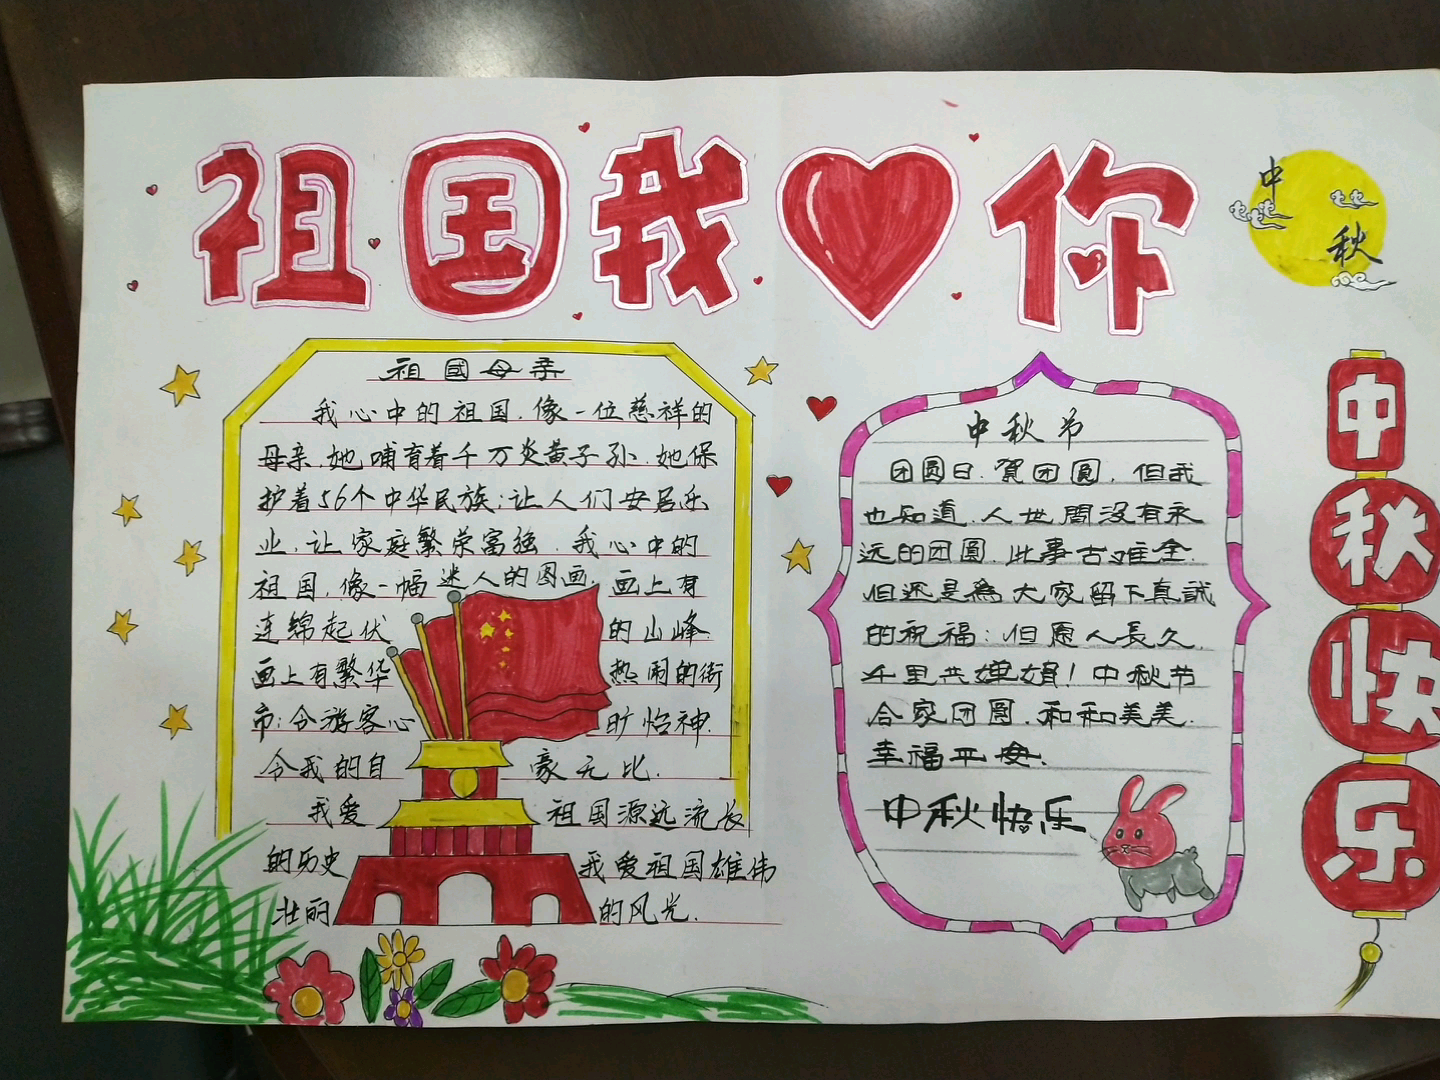 祖国我你
中
秋
祖國母亲
我心中的祖国，像一位慈祥的
母亲，她哺育着千万炎黄子孙，她保
护着56个中华民族；让人们安居乐
业，让家庭繁荣富强，我心中的
祖国，像一幅迷人的图画，画上有
连绵起伏的山峰
画上有繁华热闹的街
市；令游客心旷怡神.
令我的自豪无比.
我爱祖国源远流长
的历史我爱祖国雄伟
壮丽的风光.
中秋节
团圆日，贺团圆，但我
也知道，人世間沒有永
远的团圓，此事古难全.
但还是為大家留下真誠
的祝福：但愿人長久，
千里共婵娟！中秋节
合家团圓，和和美美.
幸福平安.
中秋快乐
中秋快乐